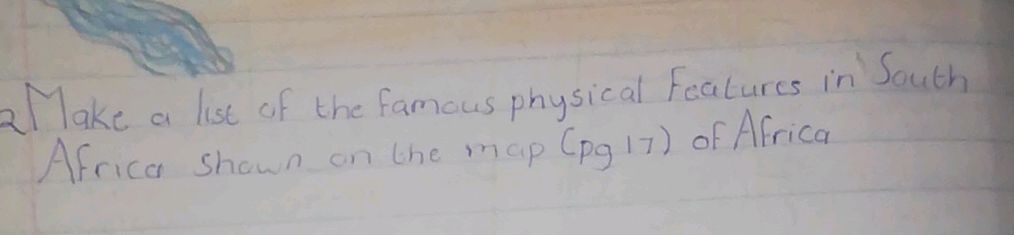 2) Make a list of the famous physical Features in South
Africa shown on the map (pg 17) of Africa